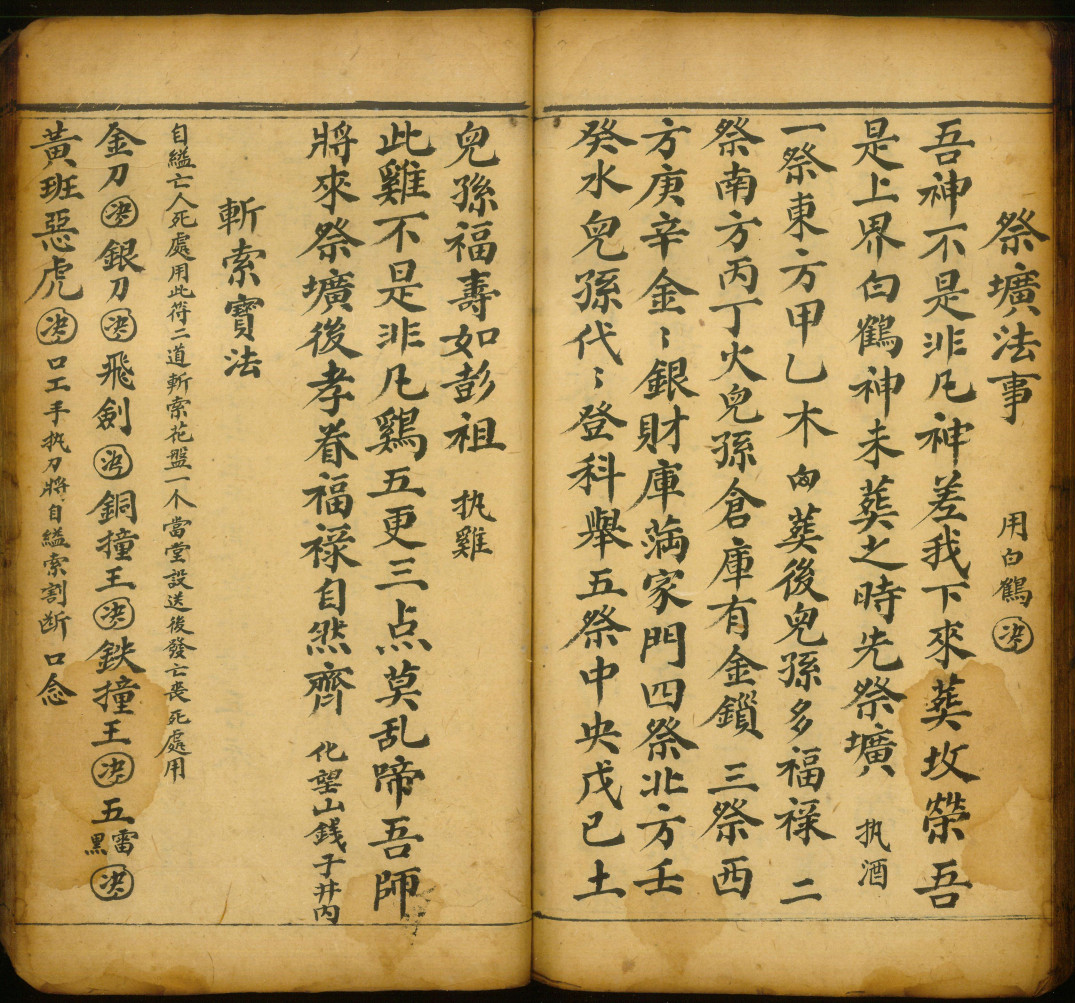 祭壙法事 用白鶴決
吾神不是非凡神差我下來葬坟榮吾
是上界白鶴神未葬之時先祭壙 执酒
一祭東方甲乙木 葬後兒孫多福祿 二
祭南方丙丁火兒孫倉庫有金鎖 三祭西
方庚辛金〻銀財庫满家門四祭北方壬
癸水兒孫代〻登科舉五祭中央戊己土
兒孫福壽如彭祖 执雞
此雞不是非凡鷄五更三点莫乱啼吾師
將來祭壙後孝眷福祿自然齊 化望山銭子井内
斬索寶法
自縊亡人死處用此符二道斬索花盤一个當堂設送後發亡丧死處用
金刀決銀刀決飛劍決銅撞王決鉄撞王決五雷黑決
黃班惡虎決口工手执刀將自縊索割断 口念